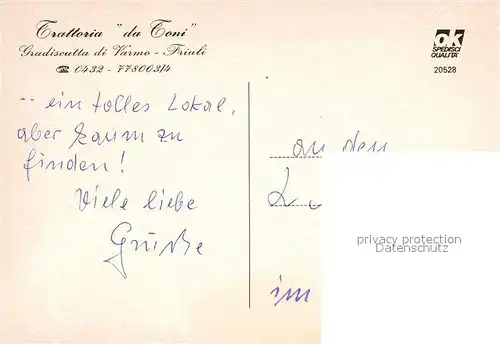 Trattoria "da Toni"
Gradiscutta di Varmo - Friuli
☎ 0432 - 778003/4
OK
SPEDISCI
QUALITA'
20528
-- ein tolles Lokal,
aber kaum zu
finden!
Viele liebe
Grüße
an den
im
privacy protection
©ansichtskartenversand.com